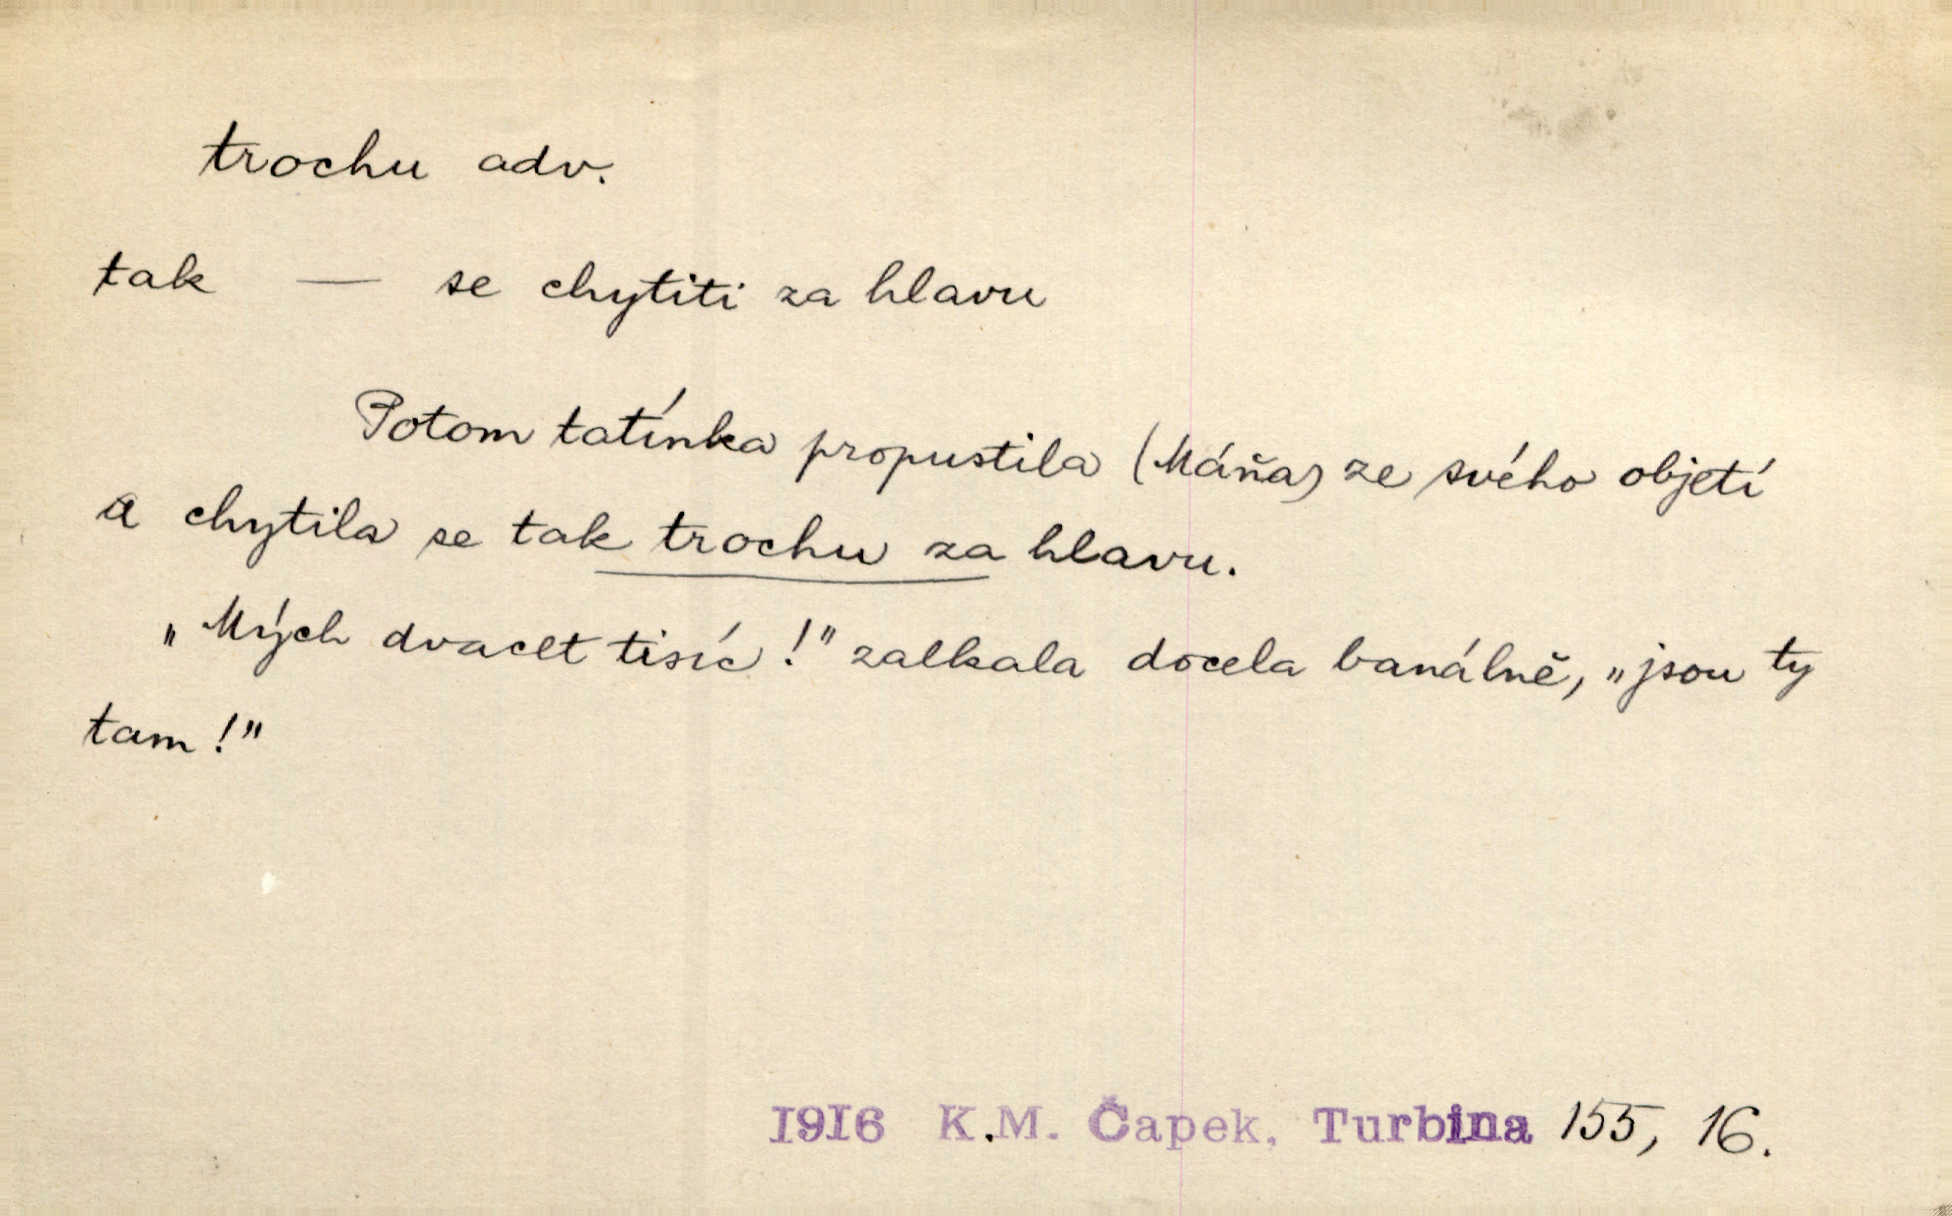 trochu adv.
tak — se chytiti za hlavu
Potom tatínka propustila (Máňa) ze svého objetí
a chytila se tak trochu za hlavu.
„Mých dvacet tisíc!" zalkala docela banálně, „jsou ty
tam!"
1916 K.M. Čapek, Turbina 155, 16.